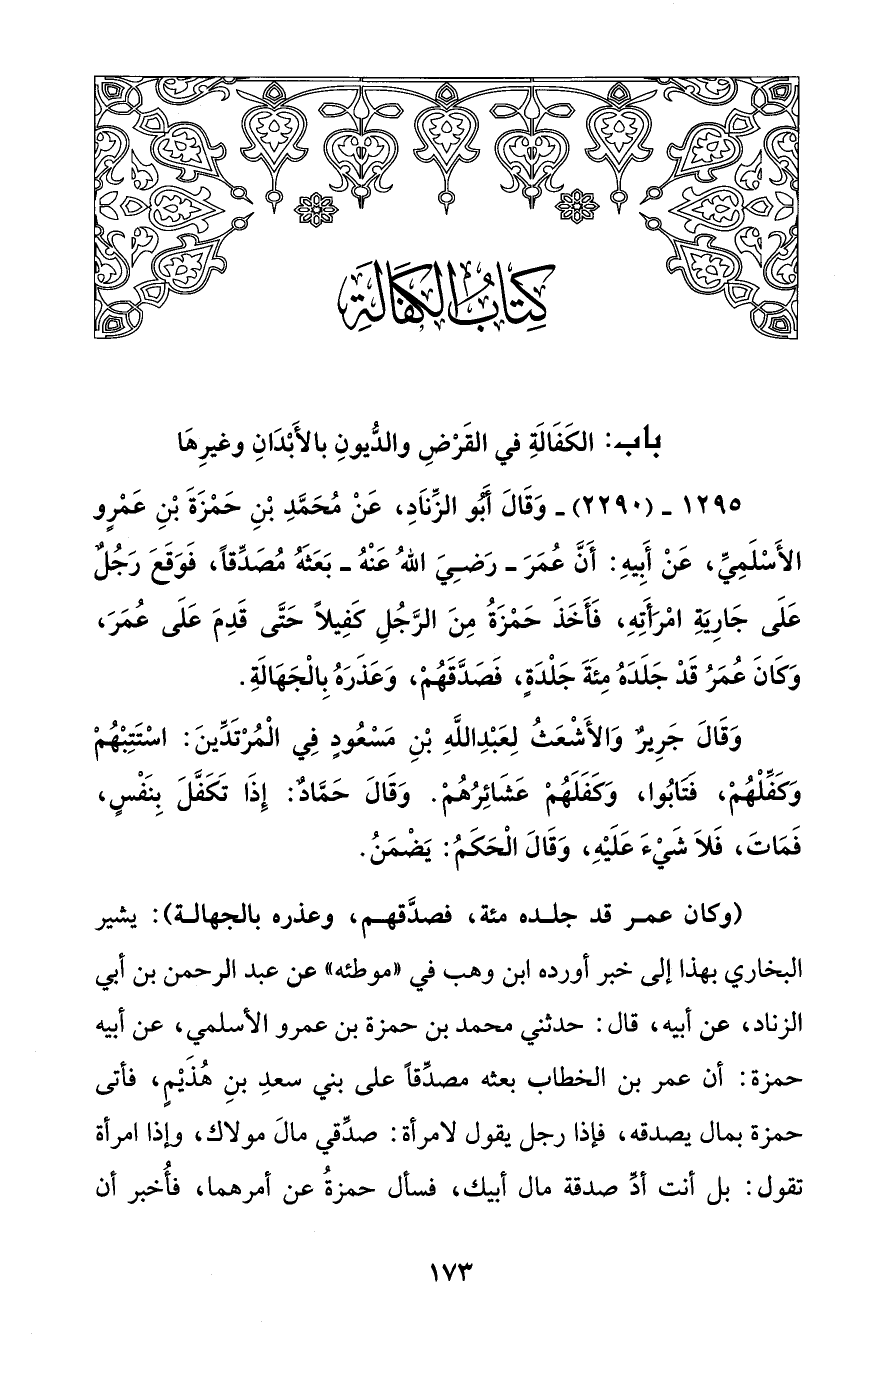 كِتَابُ الكَفَالَةِ
باب: الكَفَالَةِ في القَرْضِ والدُّيونِ بالأَبْدَانِ وغيرِهَا
١٢٩٥ ـ (٢٢٩٠) ـ وَقَالَ أَبُو الزِّنَادِ، عَنْ مُحَمَّدِ بْنِ حَمْزَةَ بْنِ عَمْرٍو
الأَسْلَمِيِّ، عَنْ أَبِيهِ: أَنَّ عُمَرَ ـ رَضِيَ اللهُ عَنْهُ ـ بَعَثَهُ مُصَدِّقاً، فَوَقَعَ رَجُلٌ
عَلَى جَارِيَةِ امْرَأَتِهِ، فَأَخَذَ حَمْزَةُ مِنَ الرَّجُلِ كَفِيلاً حَتَّى قَدِمَ عَلَى عُمَرَ،
وَكَانَ عُمَرُ قَدْ جَلَدَهُ مِئَةَ جَلْدَةٍ، فَصَدَّقَهُمْ، وَعَذَرَهُ بِالْجَهَالَةِ.
وَقَالَ جَرِيرٌ وَالأَشْعَثُ لِعَبْدِاللَّهِ بْنِ مَسْعُودٍ فِي الْمُرْتَدِّينَ: اسْتَتِبْهُمْ
وَكَفِّلْهُمْ، فَتَابُوا، وَكَفَلَهُمْ عَشَائِرُهُمْ. وَقَالَ حَمَّادٌ: إِذَا تَكَفَّلَ بِنَفْسٍ،
فَمَاتَ، فَلاَ شَيْءَ عَلَيْهِ، وَقَالَ الْحَكَمُ: يَضْمَنُ.
(وكان عمر قد جلده مئة، فصدَّقهم، وعذره بالجهالة): يشير
البخاري بهذا إلى خبر أورده ابن وهب في «موطئه» عن عبد الرحمن بن أبي
الزناد، عن أبيه، قال: حدثني محمد بن حمزة بن عمرو الأسلمي، عن أبيه
حمزة: أن عمر بن الخطاب بعثه مصدِّقاً على بني سعدِ بنِ هُذَيْمٍ، فأتى
حمزة بمال يصدقه، فإذا رجل يقول لامرأة: صدِّقي مالَ مولاك، وإذا امرأة
تقول: بل أنت أدِّ صدقة مال أبيك، فسأل حمزةُ عن أمرهما، فأُخبر أن
١٧٣